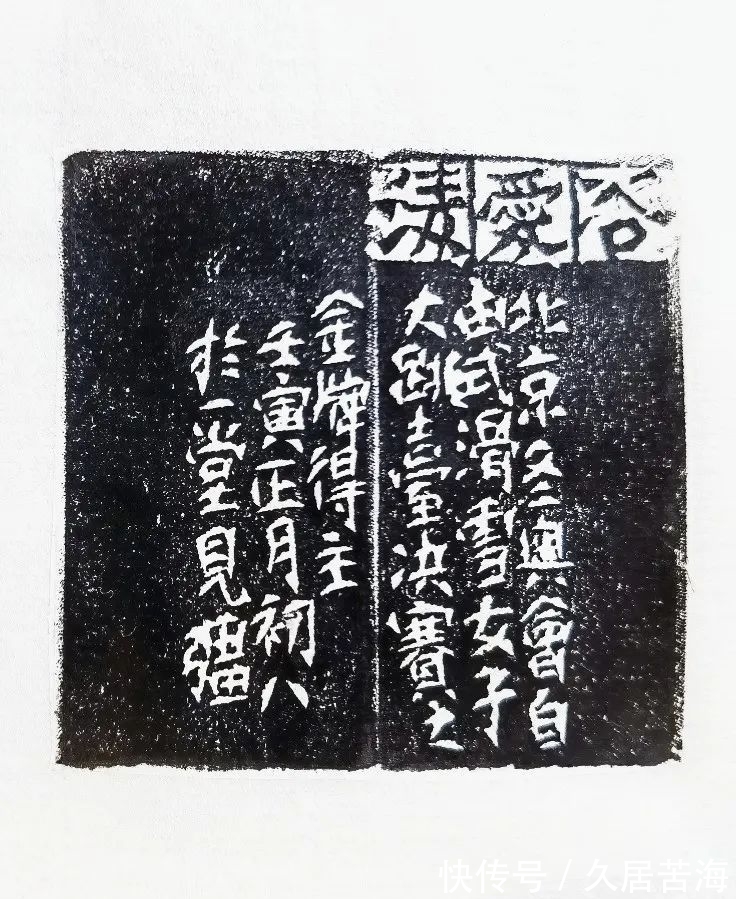 谷愛凌
北京冬奧會自
由式滑雪女子
大跳臺決賽之
金牌得主
壬寅正月初八
於一堂見疆
快传号 / 久居苦海